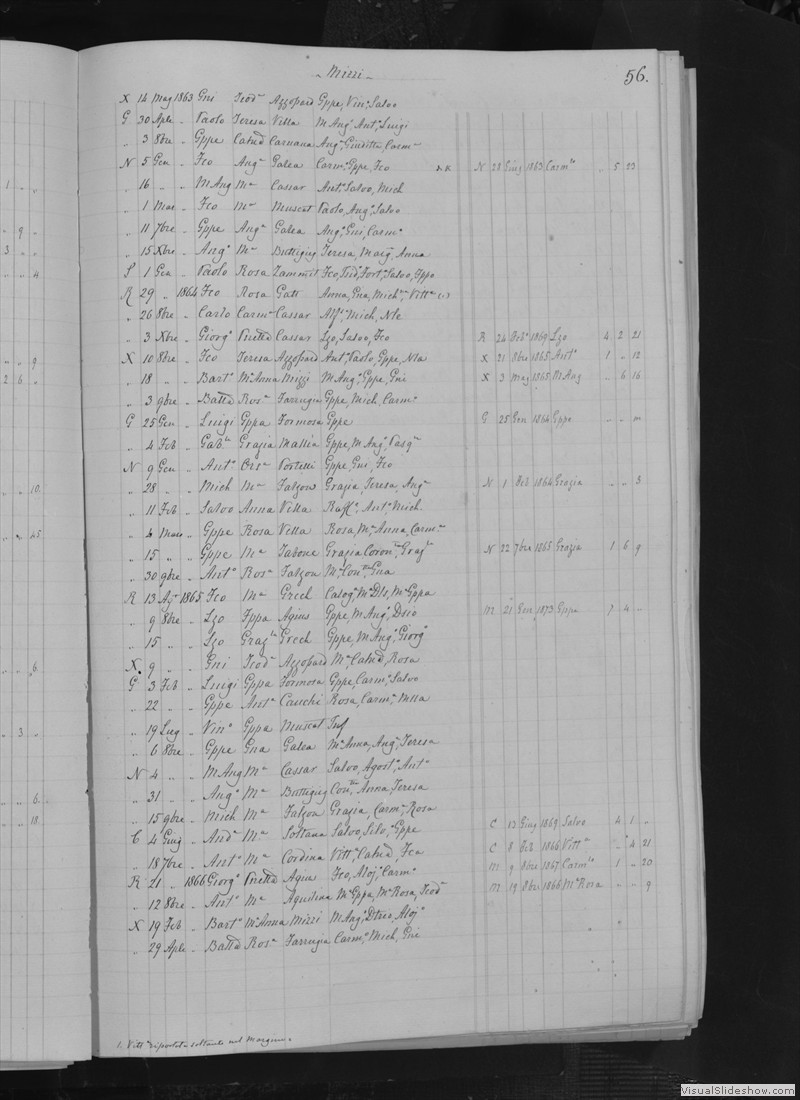 Mizzi
56.
X 14 Mag 1863 Gni Teod.a Azzopard Gppe, Vin.o Salvo
G 30 Aple " Paolo Teresa Villa M Ang.a Ant.o Luigi
" 3 8bre " Gppe Catnd Caruana Ang.o Giuditta, Carm.a
N 5 Gen " Fco Ang.a Galea Carm.a Gppe, Fco N 28 Giug 1863 Carm.la " 5 23
" 16 " " M Ang M.a Cassar Ant.o Salvo, Mich
" 1 Mar " Fco M.a Muscat Paolo, Ang.o Salvo
" 11 7bre " Gppe Ang.a Galea Ang.o Gni, Carm.a
" 15 Xbre " Ang.o M.a Buttigieg Teresa, Anna
S 1 Gen " Paolo Rosa Zammit Fco, Salvo, Gppe
R 29 " 1864 Fco Rosa Gatt Anna, Gna, Mich.a Vitt.a (1)
" 26 8bre " Carlo Carm.a Cassar Alf.o Mich, Nle
" 3 Xbre " Giorg.o Cassar Lzo, Salvo, Fco R 24 Feb.o 1869 Lzo 4 2 21
X 10 8bre " Fco Teresa Azzopard Ant.o Paolo, Gppe, Nla X 21 8bre 1865 Ant.o 1 " 12
" 18 " " Bart.o M.a Anna Mizzi M Ang.o Gppe, Gni X 3 Mag 1865 M Ang " 6 16
" 3 9bre " Battd Ros.a Farrugia Gppe, Mich, Carm.a
G 25 Gen " Luigi Gppa Formosa Gppe G 25 Gen 1864 Gppe " " m
" 4 Feb " Gab.le Grazia Mallia Gppe, M Ang.o Pasq.a
N 9 Gen " Ant.o Ors.a Portelli Gppe, Gni, Fco
" 28 " " Mich M.a Falzon Grazia, Teresa, Ang.a N 1 Feb 1864 Grazia " " 3
" 11 Feb " Salvo Anna Villa Raff.e Ant.o Mich
" 4 Marz " Gppe Rosa Villa Rosa, M.a Anna, Carm.a
" 15 " " Gppe M.a Tabone Grazia N 22 7bre 1865 Grazia 1 6 9
" 30 9bre " Ant.o Ros.a Falzon M.a Con.tta Gna
R 13 Ag.t 1865 Fco M.a Grech Calog.o M.a Dls, M.a Gppa
" 9 8bre " Lzo Fppa Agius Gppe, M Ang.o M 21 Gen 1873 Gppa 7 4 "
" 15 " " Lzo Graz.la Grech Gppe, M Ang.o Giorg.o
X 9 " " Gni Teod.a Azzopard M.a Catnd, Rosa
G 3 Feb " Luigi Gppa Formosa Gppe, Carm.o Salvo
" 22 " " Gppe Ant.a Cauchi Rosa, Carm.a
" 19 Lug " Vin.o Gppa Muscat Inf
" 6 8bre " Gppe Gna Galea M.a Anna, Ang.o Teresa
N 4 " " M Ang M.a Cassar Salvo, Agost.o Ant.o
" 31 " " Ang.o M.a Buttigieg Con.tta Anna, Teresa
" 15 9bre " Mich M.a Falzon Grazia, Carm.a Rosa
C 4 Giug " And.a M.a Soltana Salvo, Silv.o Gppe C 13 Giug 1869 Salvo 4 1 "
" 18 7bre " Ant.o M.a Cordina Vitt.a Catnd, Fca C 8 Feb 1866 Vitt.a " 4 21
R 21 " 1866 Giorg.o Agius Fco, Aloj.o Carm.a M 9 8bre 1867 Carm.la 1 " 20
" 12 8bre " Ant.o M.a Aquilina M.a Gppa, M.a Rosa, Teod.a M 19 8bre 1866 M.a Rosa " " 9
X 19 Feb " Bart.o M.a Anna Mizzi M Ang.o Aloj.o
" 29 Aple " Battd Ros.a Farrugia Carm.o Mich, Gni
1. Vitt.a riportata soltanto nel Margine.
VisualSlideshow.com